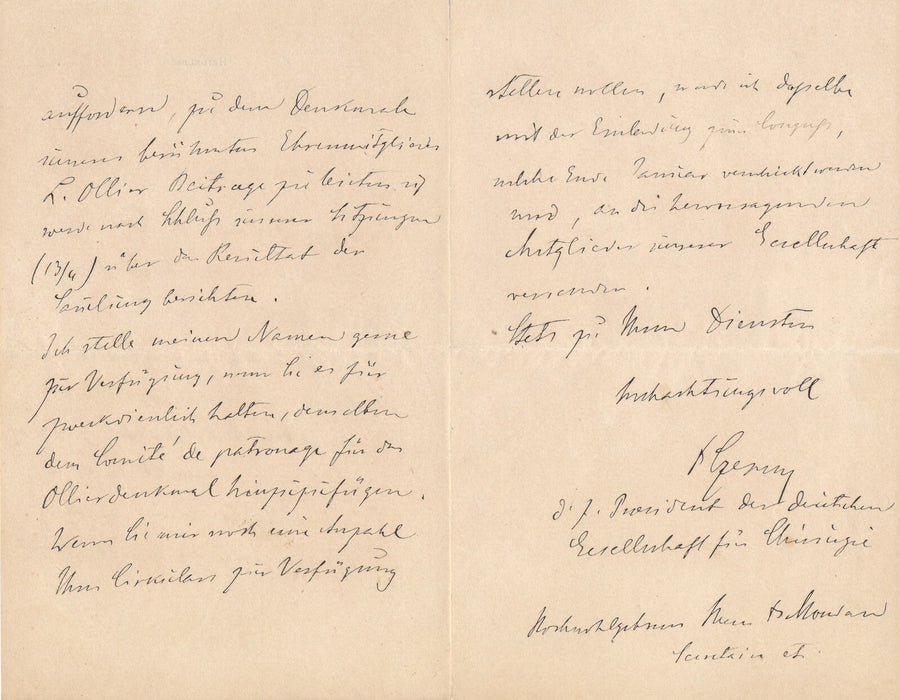 auffordern, zu dem Denkmale
unseres berühmten Ehrenmitgliedes
L. Ollier Beiträge zu leisten u
werde nach Schluß unserer Sitzungen
(13/4) über das Resultat der
Samlung berichten.
Ich stelle meinen Namen gerne
zur Verfügung, wenn Sie es für
zweckdienlich halten, denselben
dem Comité de patronage für das
Ollierdenkmal hinzuzufügen.
Wenn Sie mir noch eine Anzahl
Ihres Cirkulars zur Verfügung
stellen wollen, werde ich dasselbe
mit der Einladung zum Congreß,
welche Ende Januar verschickt werden
wird, an die hervorragenden
Mitglieder unserer Gesellschaft
versenden.
Stets zu Ihren Diensten
Hochachtungsvoll
Czerny
d. z. Praesident der deutschen
Gesellschaft für Chirurgie
Hochwohlgeboren Herrn